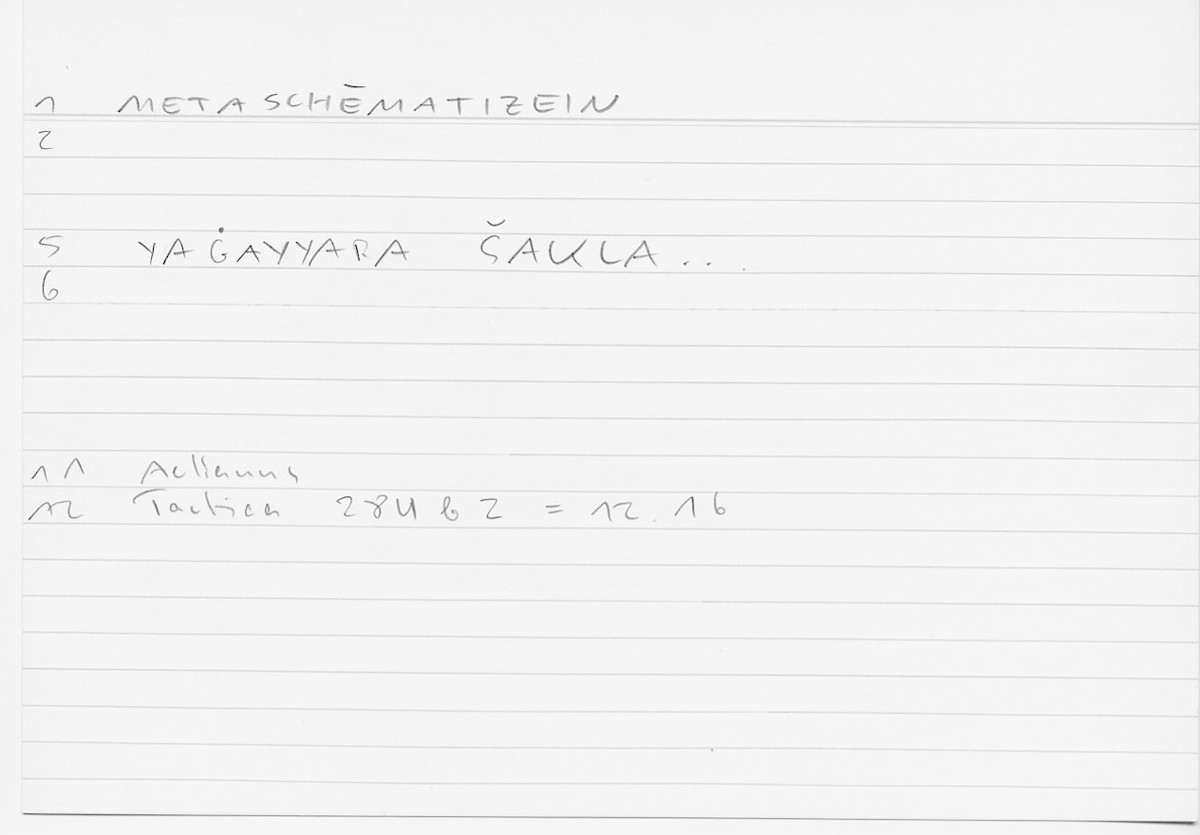 1 METASCHĒMATIZEIN
2
5 YAĠAYYARA ŠAKLA..
6
11 Aelianus
12 Tactica 284 b 2 = 12.16